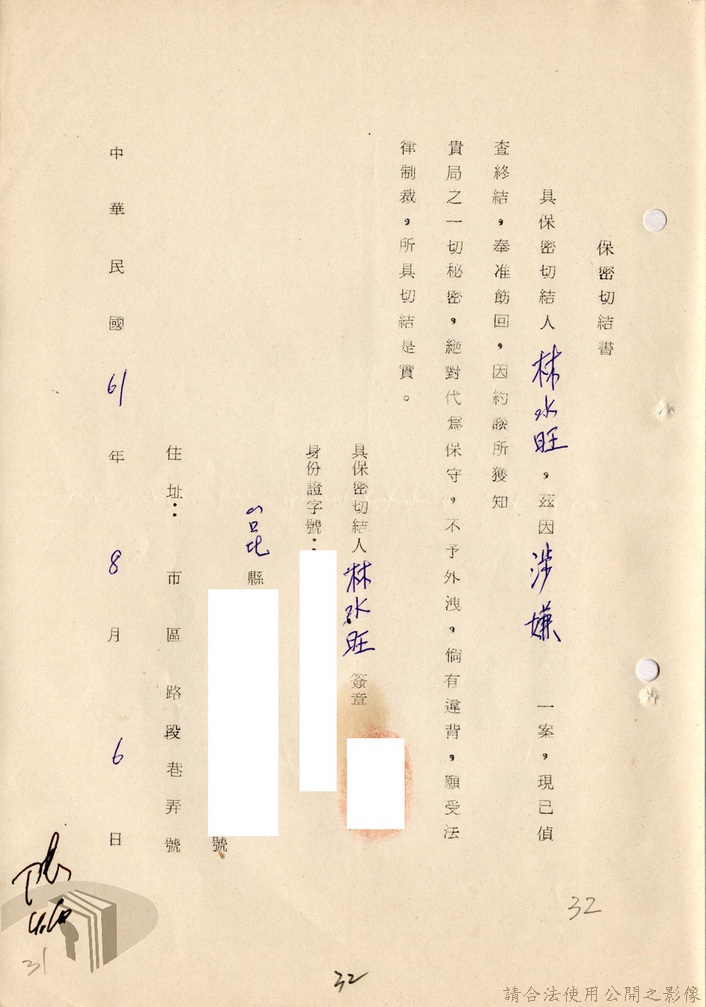 保密切結書
具保密切結人林水旺，茲因涉嫌　一案，現已偵
查終結，奉准飭回，因約談所獲知
貴局之一切秘密，絕對代為保守，不予外洩，倘有違背，願受法
律制裁，所具切結是實。
具保密切結人林水旺簽章
身份證字號：
縣
號
住址：市區路段巷弄號
中華民國61年8月6日
32
32
31
請合法使用公開之影像